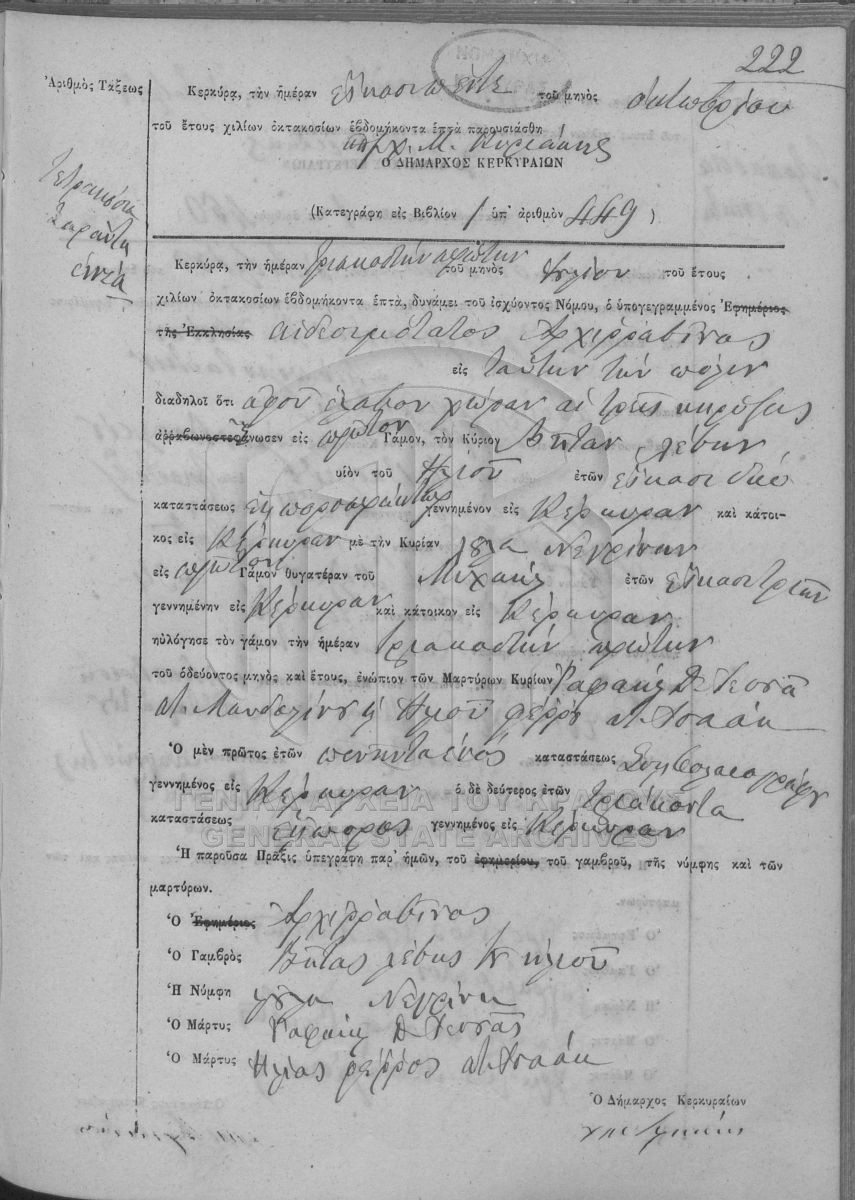 222
Ἀριθμὸς Τάξεως
Κερκύρα, τὴν ἡμέραν εἴκοσι πέντε τοῦ μηνὸς Ὀκτωβρίου
τοῦ ἔτους χιλίων ὀκτακοσίων ἑβδομήκοντα ἑπτὰ παρουσιάσθη
Μ. Κυριάκης
Ὁ ΔΗΜΑΡΧΟΣ ΚΕΡΚΥΡΑΙΩΝ
Τετρακόσια
σαράντα
ἐννέα
(Κατεγράφη εἰς Βιβλίον / ὑπ' ἀριθμὸν 449)
Κερκύρα, τὴν ἡμέραν τριακοστὴν πρώτην τοῦ μηνὸς Ἰουλίου τοῦ ἔτους
χιλίων ὀκτακοσίων ἑβδομήκοντα ἑπτά, δυνάμει τοῦ ἰσχύοντος Νόμου, ὁ ὑπογεγραμμένος Ἐφημέριος
τῆς Ἐκκλησίας αἰδεσιμότατος Ἀρχιρραβῖνος
εἰς ταύτην τὴν πόλιν
διαδηλοῖ ὅτι ἀφοῦ ἔλαβον χώραν αἱ τρεῖς κηρύξεις
ἀῤῥαβωνοστεφάνωσεν εἰς πρῶτον Γάμον, τὸν Κύριον Βίταν Λέβην
υἱὸν τοῦ Ἠλιοῦ ἐτῶν εἴκοσι δύο
καταστάσεως ἐμποροπράκτωρ γεννημένον εἰς Κέρκυραν καὶ κάτοι-
κος εἰς Κέρκυραν μὲ τὴν Κυρίαν Νεγρίναν
εἰς πρῶτον Γάμον θυγατέραν τοῦ Μιχαὴλ ἐτῶν εἴκοσι τριῶν
γεννημένην εἰς Κέρκυραν καὶ κάτοικον εἰς Κέρκυραν
ηὐλόγησε τὸν γάμον τὴν ἡμέραν τριακοστὴν πρώτην
τοῦ ὁδεύοντος μηνὸς καὶ ἔτους, ἐνώπιον τῶν Μαρτύρων Κυρίων Ραφαὴλ Δε Σεμᾶ
Ἠλιοῦ Φέρρο Ἰσαάκ
Ὁ μὲν πρῶτος ἐτῶν πενήντα ἑνός καταστάσεως Συμβολαιογράφου
γεννημένος εἰς Κέρκυραν ὁ δὲ δεύτερος ἐτῶν τριάκοντα
καταστάσεως ἔμπορος γεννημένος εἰς Κέρκυραν
ΓΕΝΙΚΑ ΑΡΧΕΙΑ ΤΟΥ ΚΡΑΤΟΥΣ
GENERAL STATE ARCHIVES
Ἡ παροῦσα Πρᾶξις ὑπεγράφη παρ' ἡμῶν, τοῦ ἐφημερίου, τοῦ γαμβροῦ, τῆς νύμφης καὶ τῶν
μαρτύρων.
Ὁ Ἐφημέριος Ἀρχιρραβῖνος
Ὁ Γαμβρὸς Βίτας Λέβης Ἠλιοῦ
Ἡ Νύμφη Νεγρίνα
Ὁ Μάρτυς Ραφαὴλ Δε Σεμᾶς
Ὁ Μάρτυς Ἠλίας Φέρρος Ἰσαάκ
Ὁ Δήμαρχος Κερκυραίων